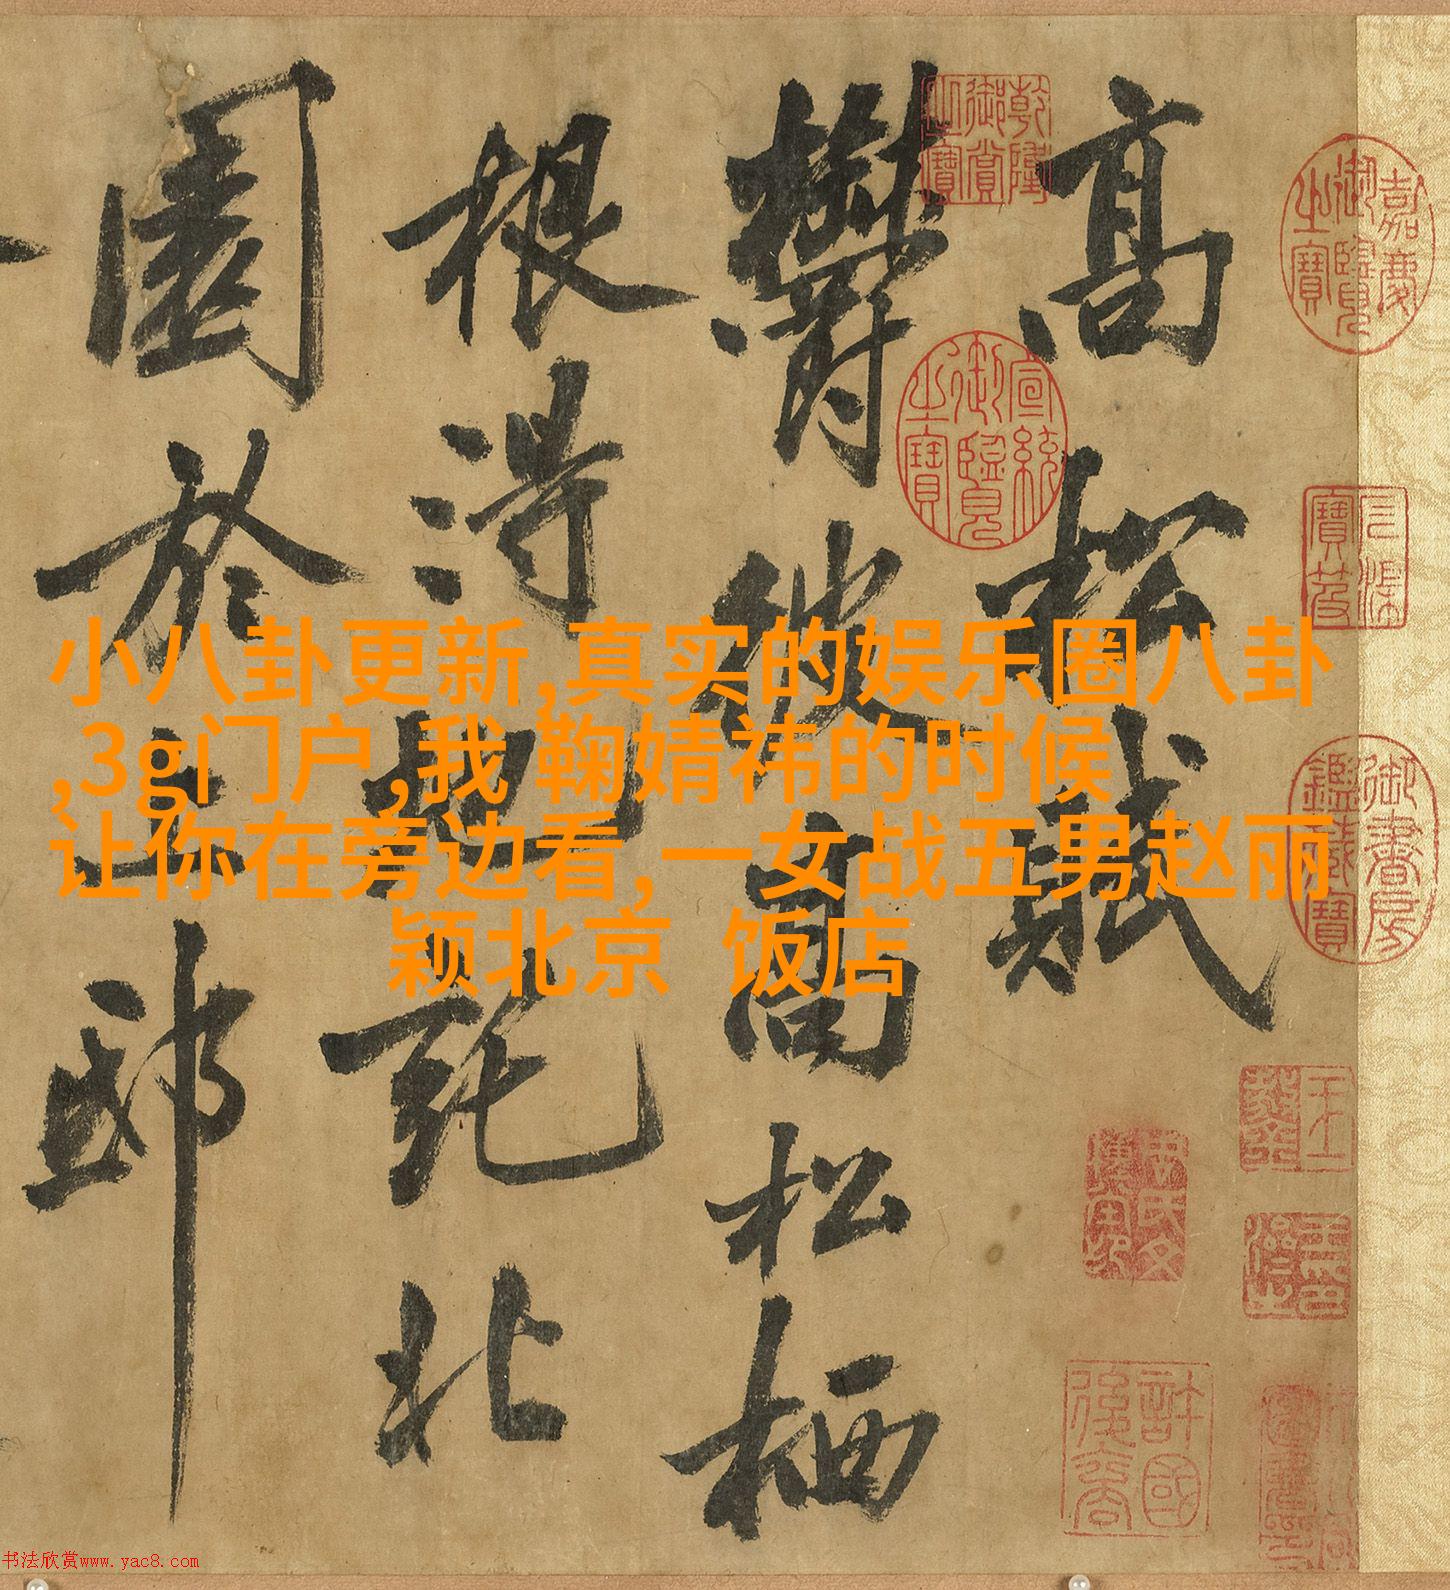 高松賦
鬱彼高松栖
根得地託北
園於上邸
乾隆御賞之寶
嘉慶御覽之寶
宣統御覽之寶
石渠寶笈
御書房鑑藏寶
許國後裔
小八卦更新,真实的娱乐圈八卦
,3g门户,我 鞠婧祎的时候
让你在旁边看, 一女战五男赵丽
颖北京 饭店
书法欣赏www.yac8.com